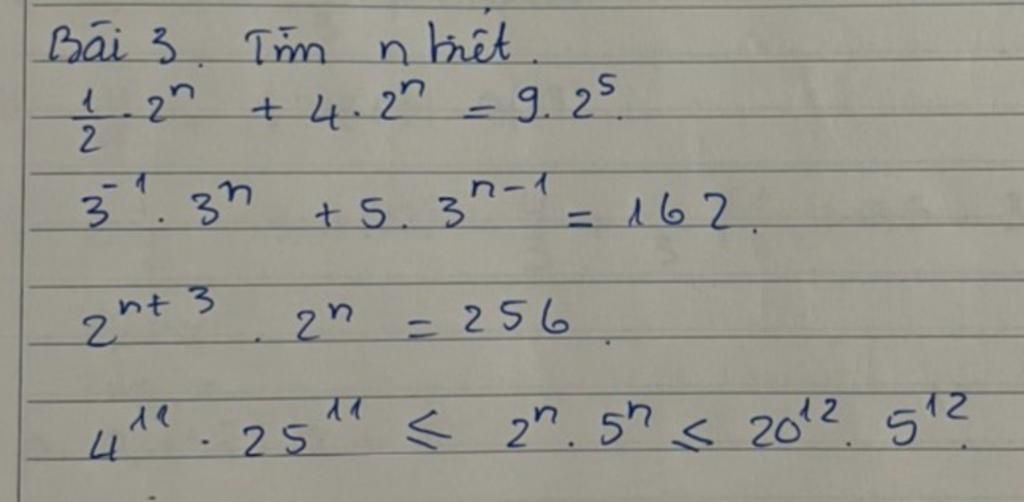 Bài 3. Tìm n biết.
1/2 . 2^n + 4 . 2^n = 9 . 2^5.
3^-1 . 3^n + 5 . 3^(n-1) = 162.
2^(n+3) . 2^n = 256.
4^11 . 25^11 ≤ 2^n . 5^n ≤ 20^12 . 5^12.